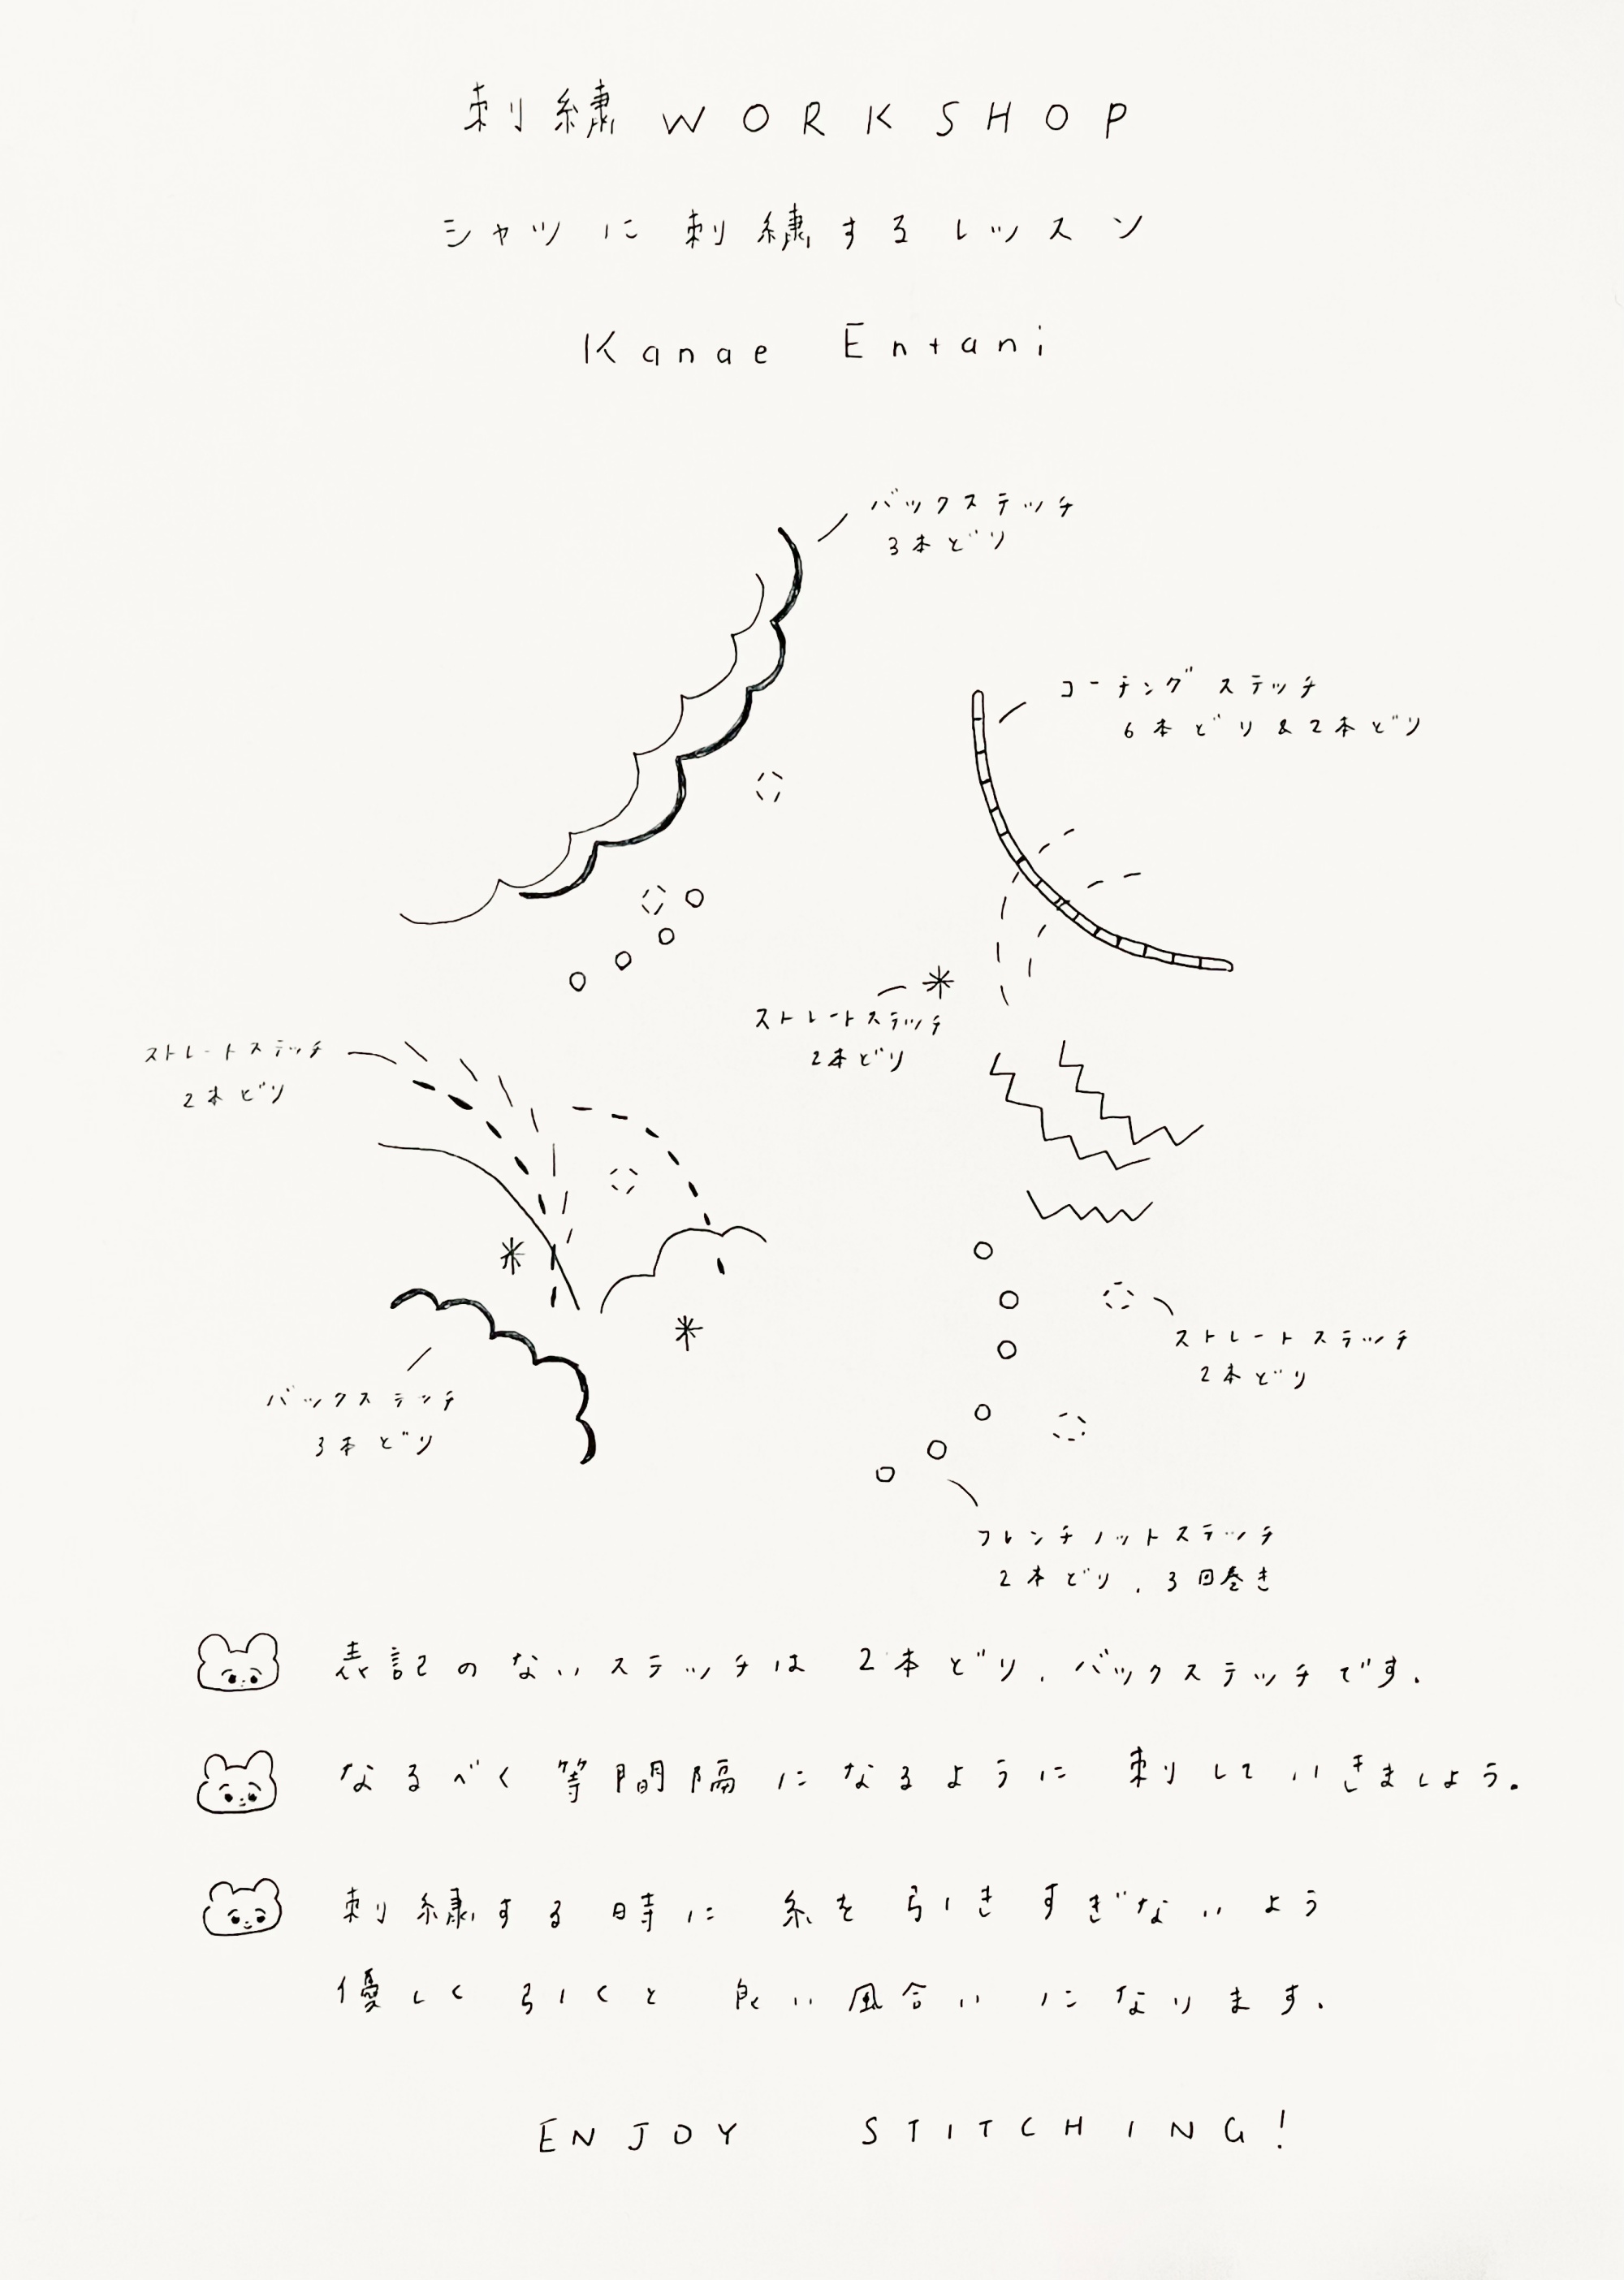 刺繍WORKSHOP
シャツに刺繍するレッスン
Kanae Entani
バックステッチ
3本どり
コーチングステッチ
6本どり&2本どり
ストレートステッチ
2本どり
ストレートステッチ
2本どり
バックステッチ
3本どり
ストレートステッチ
2本どり
フレンチノットステッチ
2本どり、3回巻き
表記のないステッチは2本どり、バックステッチです。
なるべく等間隔になるように刺していきましょう。
刺繍する時に糸を引きすぎないよう
優しく引くと良い風合いになります。
ENJOY STITCHING!